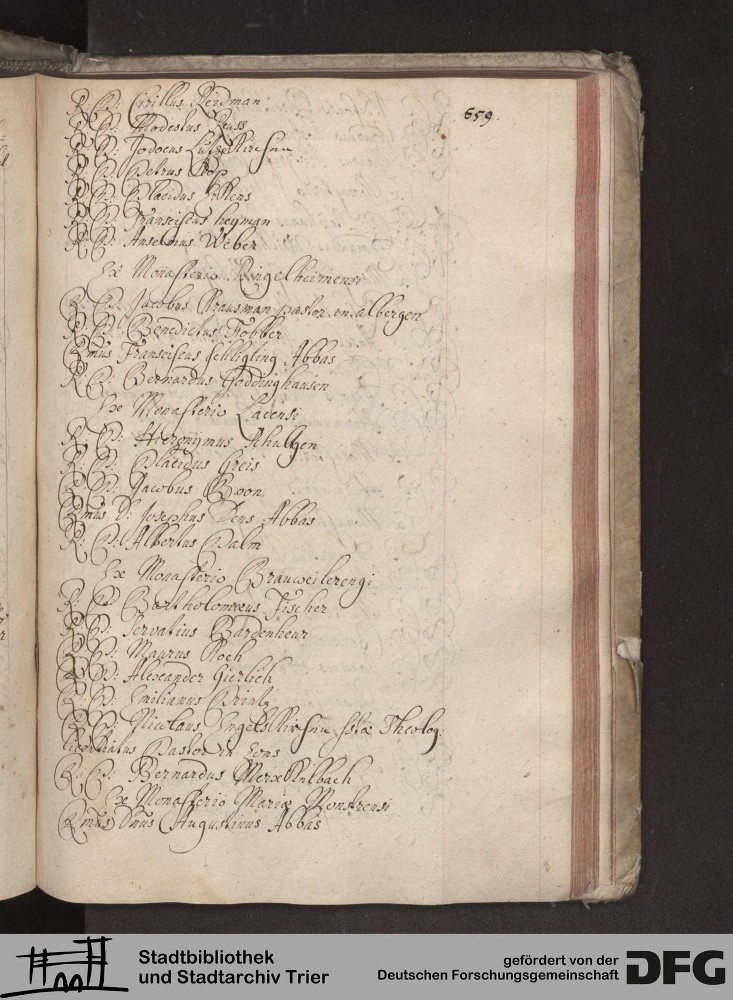 R: P: Cirillus Reidman
659.
R: P: Modestus Heuss
R: P: Jodocus Lützelkirchen
R: P: Petrus Kop
R: P: Placidus Hillens
R: P: Franciscus heyman
R: P: Anselmus Weber
Ex Monasterio Ringelheimensi
R: P: Jacobus Krausman pastor in albergen
R: P: Benedictus Tobber
Rmus Franciscus schligling Abbas
R: P: Bernardus Goddinghausen
Ex Monasterio Lacensi
R: P: Hieronymus Schulgen
R: P: Placidus Greis
R: P: Jacobus Boon
Rmus D: Josephus Dens Abbas
R: P: Albertus Palm
Ex Monasterio Brauweilerengi
R: P: Bartholomæus Fischer
R: P: Servatius Bardenheur
R: P: Maurus Koch
R: P: Alexander Gierlich
R: P: Emilianus Printz
R: P: Nicolaus Engelskirchen sstæ Theolog:
licentiatus Pastor in Zons
R: P: Bernardus Merxkulbach
Ex Monasterio Mariæ
Rmus Dnus Augustinus Abbas
Stadtbibliothek
und Stadtarchiv Trier
gefördert von der
Deutschen Forschungsgemeinschaft
DFG